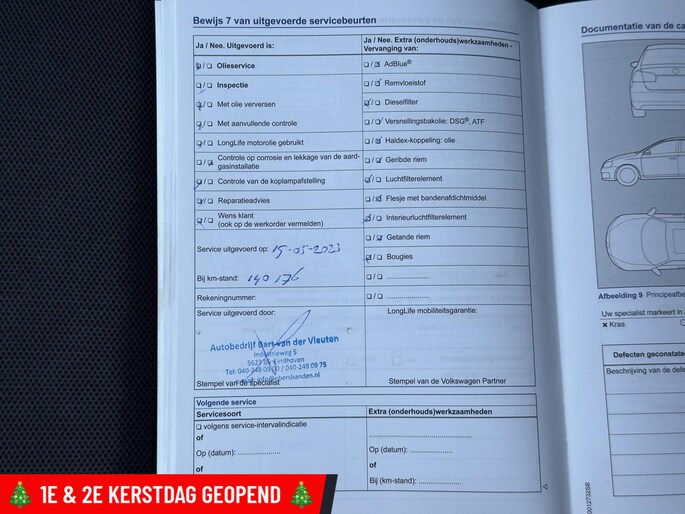 Bewijs 7 van uitgevoerde servicebeurten
Ja / Nee. Uitgevoerd is:
Ja / Nee. Extra (onderhouds)werkzaamheden -
Vervanging van:
Olieservice
AdBlue®
Inspectie
Remvloeistof
Met olie verversen
Dieselfilter
Met aanvullende controle
Versnellingsbakolie: DSG®, ATF
LongLife motorolie gebruikt
Haldex-koppeling: olie
Controle op corrosie en lekkage van de aard-
gasinstallatie
Geribde riem
Controle van de koplampafstelling
Luchtfilterelement
Reparatieadvies
Flesje met bandenafdichtmiddel
Wens klant
(ook op de werkorder vermelden)
Interieurluchtfilterelement
Service uitgevoerd op: 15-05-2023
Getande riem
Bougies
Bij km-stand: 140 176
Rekeningnummer:
Service uitgevoerd door:
LongLife mobiliteitsgarantie:
Autobedrijf Bart van der Vleuten
Industrieweg 5
Eindhoven
/ 040-248 09 75
Stempel van de specialist
Stempel van de Volkswagen Partner
Volgende service
Servicesoort
Extra (onderhouds)werkzaamheden
volgens service-intervalindicatie
of
Op (datum):
of
Op (datum):
of
Bij (km-stand):
Documentatie van de ca
Afbeelding 9 Principeafbe
Uw specialist markeert in
× Kras
Defecten geconstate
Beschrijving van de defe
1E & 2E KERSTDAG GEOPEND